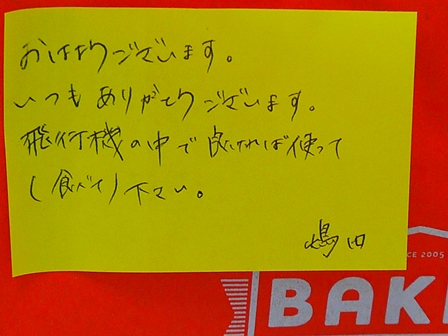 おはようございます。
いつもありがとうございます。
飛行機の中で良ければ使って
(食べて)下さい。
嶋田
CE 2005
BAK